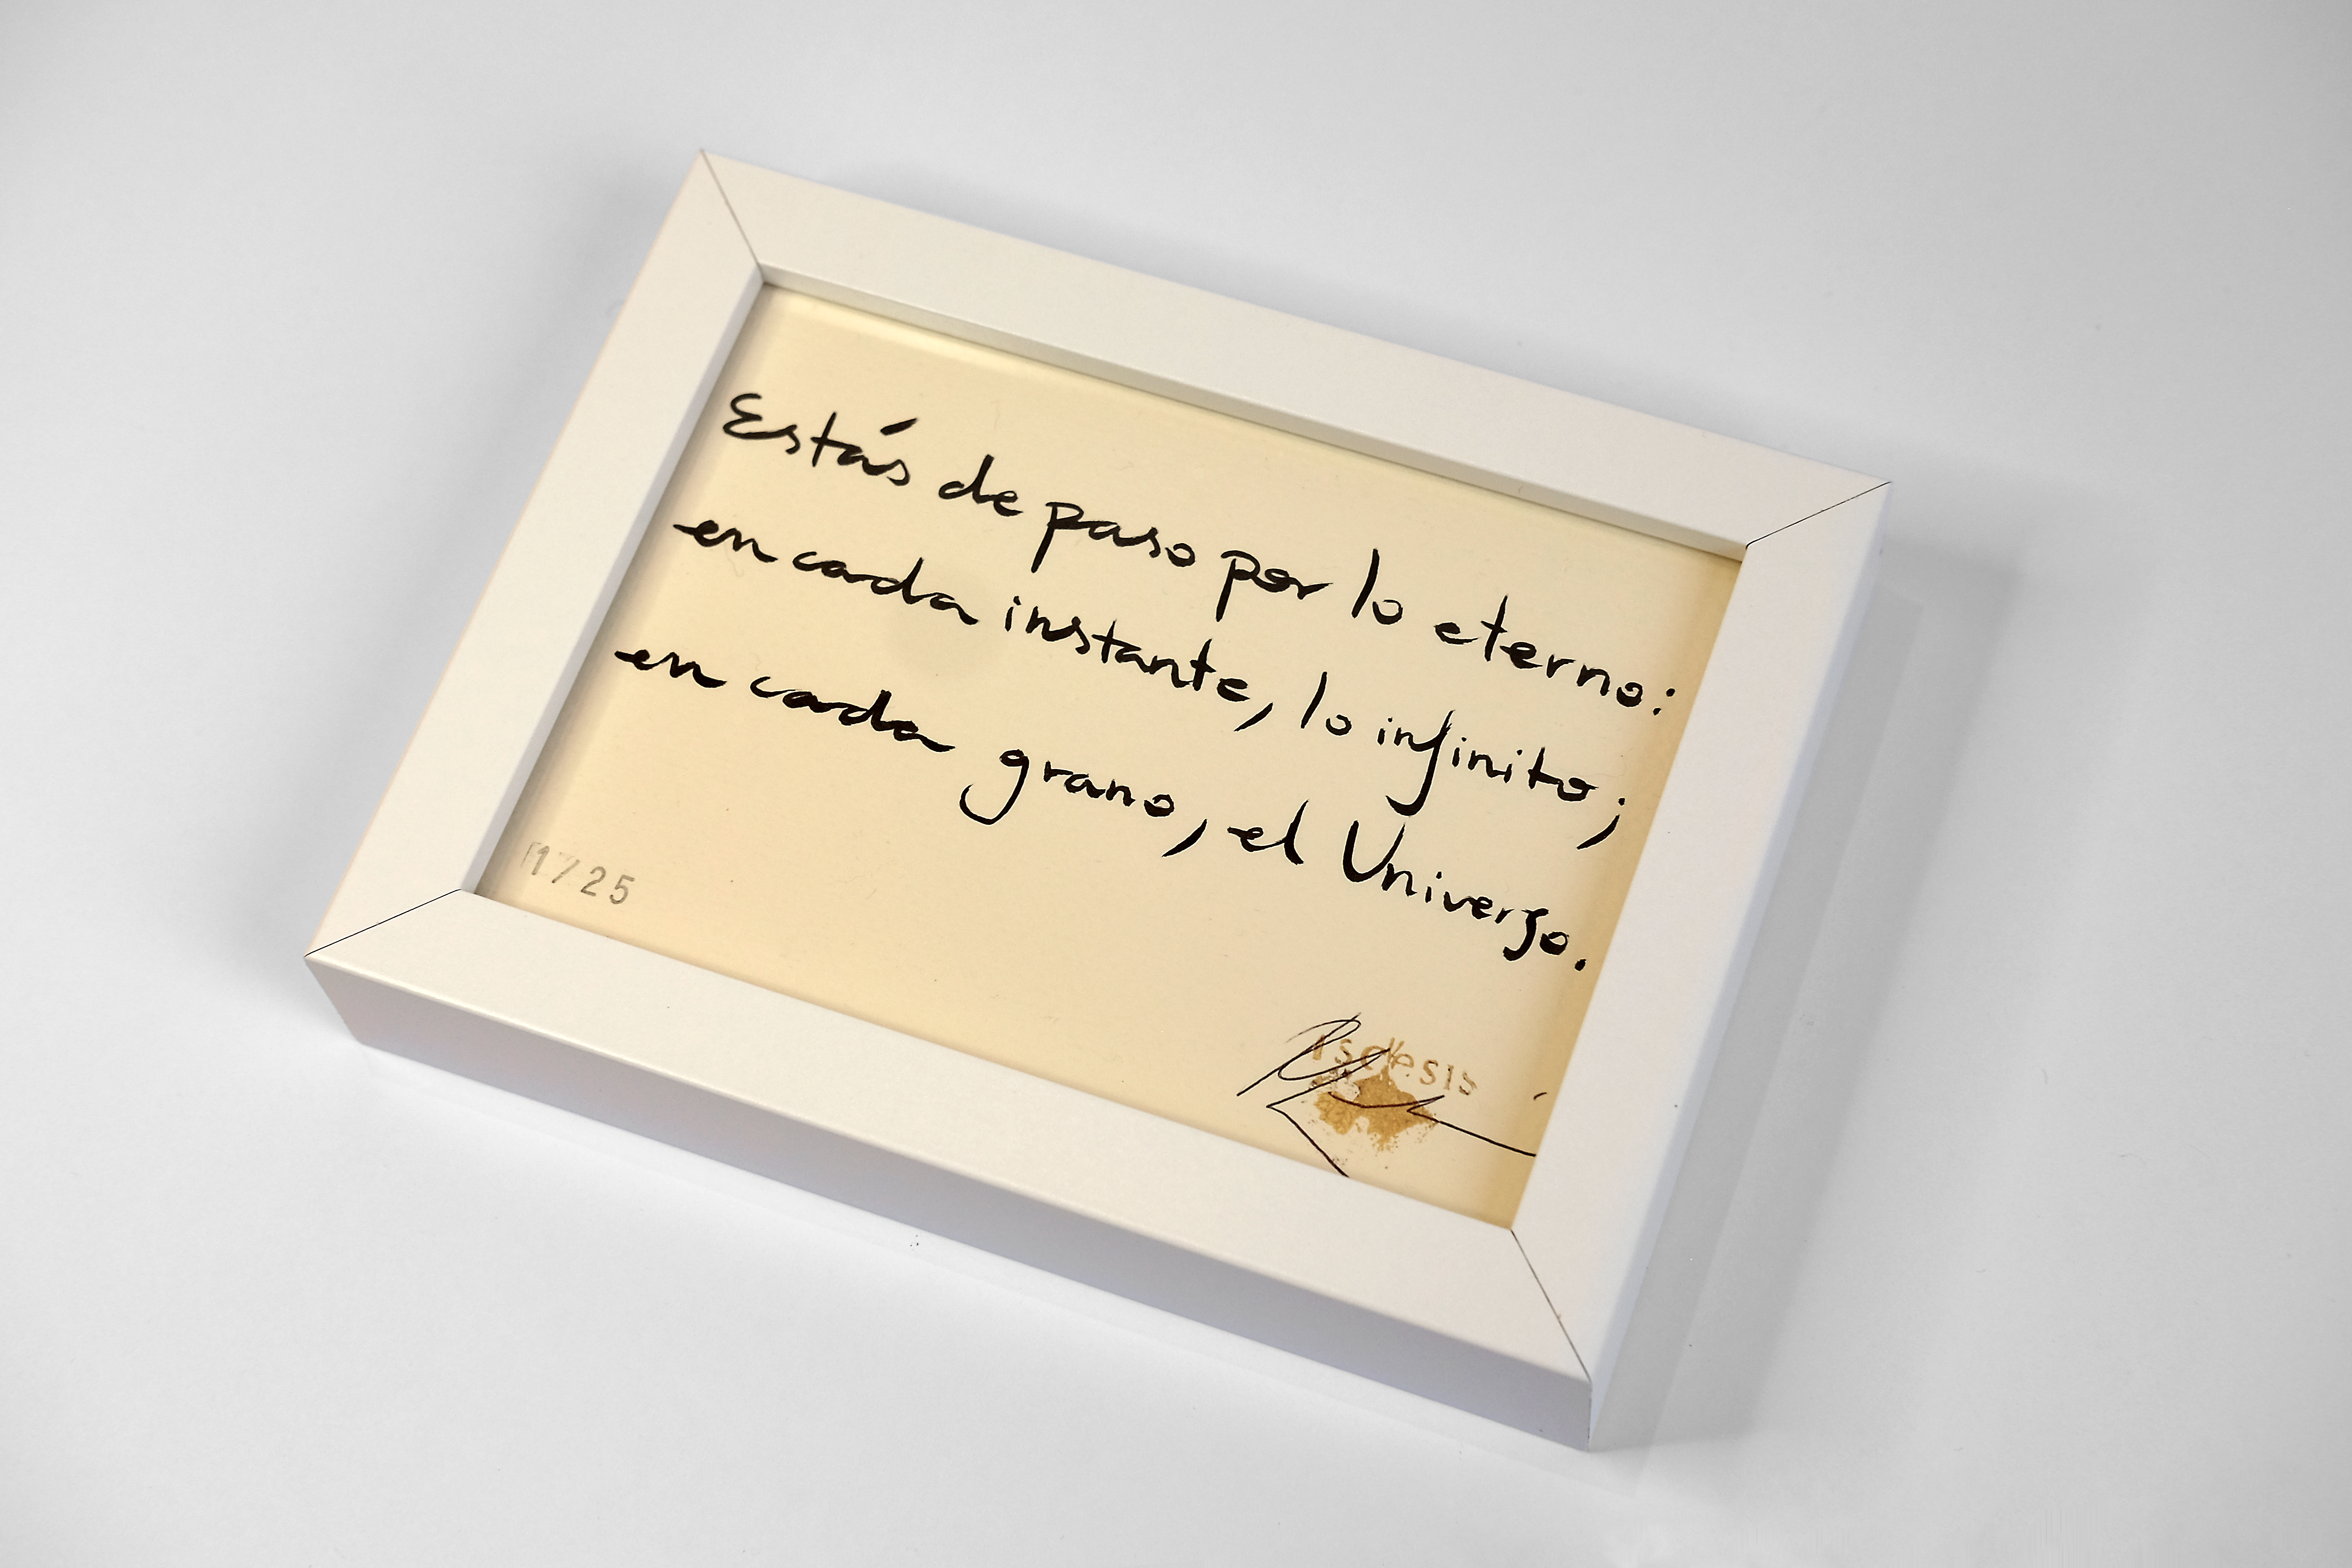 Estás de paso por lo eterno:
en cada instante, lo infinito;
en cada grano, el Universo.
1/25